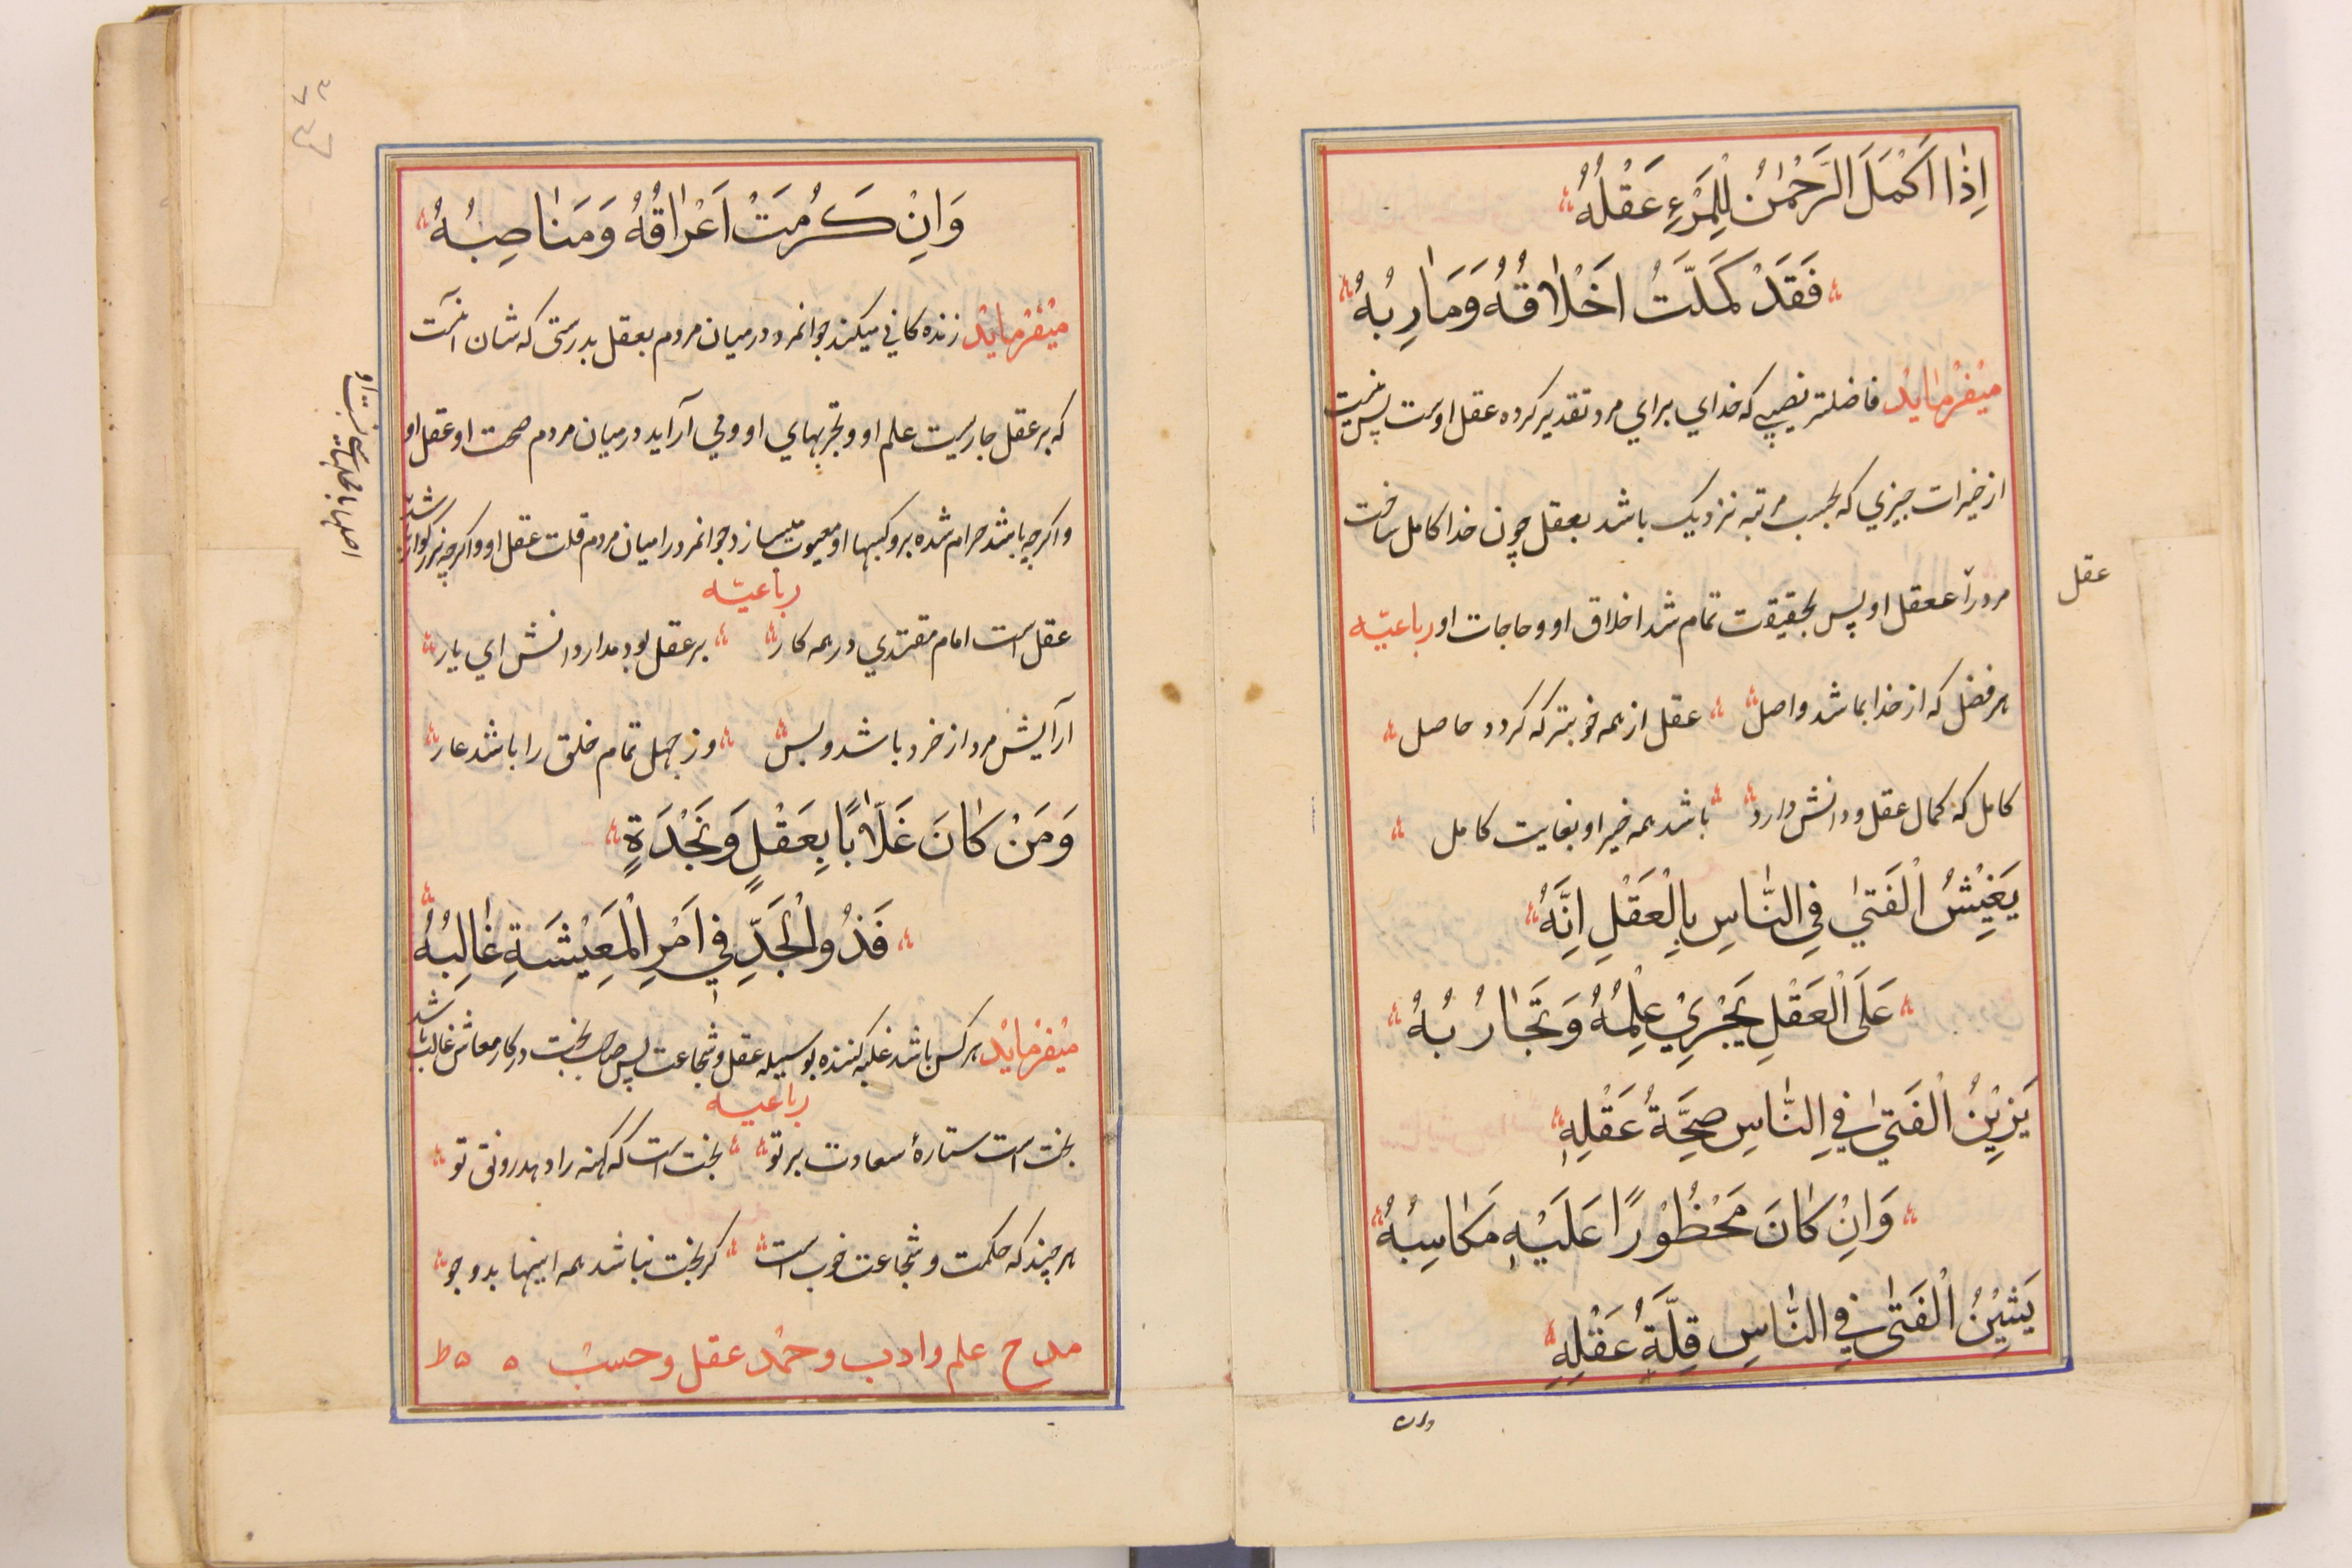 اِذٰا اَكْمَلَ الرَّحْمٰنُ لِلْمَرْءِ عَقْلَهُ
فَقَدْ كَمَلَتْ اَخْلٰاقُهُ وَمَاٰرِبُهُ
میفرماید فاضلتر نصیبی که خدای برای مرد تقدیر کرده عقل اوست پس نیست
از خیرات چیزی که بحسب مرتبه نزدیک باشد بعقل چون خدا کامل ساخت
مرد را عقل او پس بحقیقت تمام شد اخلاق او و حاجات او رباعیّه
عقل
هر فضل که از خدا بما شد واصل عقل از همه خوبتر که کردد حاصل
کامل که کمال عقل و دانش دارد باشد همه خیر او بغایت کامل
يَعِيْشُ الْفَتىٰ فِي النّٰاسِ بِالْعَقْلِ اِنَّهُ
عَلَى الْعَقْلِ يَجْرِيْ عِلْمُهُ وَتَجٰارُبُهُ
يَزِيْنُ الْفَتىٰ فِي النّٰاسِ صِحَّةُ عَقْلِهِ
وَاِنْ كٰانَ مَحْظُوْرًا عَلَيْهِ مَكٰاسِبُهُ
يَشِيْنُ الْفَتىٰ فِي النّٰاسِ قِلَّةُ عَقْلِهِ
وان
وَاِنْ كَرُمَتْ اَعْرٰاقُهُ وَمَنٰاصِبُهُ
میفرماید زنده کانی میکند جوانمرد در میان مردم بعقل بدرستی که شان اینست
که بر عقل جاریست علم او و تجربهای او و می آراید در میان مردم صحت او عقل او
و اکرچه باشد حرام شده برو کسبها او معیوب میسازد جوانمرد را میان مردم قلت عقل او و اکرچه بزرکوار شد
اصلها با
رباعیّه
عقل است امام مقتدی در همه کار بر عقل بود مدار دانش ای یار
آرایش مرد از خرد باشد و بس وز جهل تمام خلق را باشد عار
وَمَنْ كٰانَ غَلّٰابًا بِعَقْلٍ وَنَجْدَةٍ
فَذُو الْجَدِّ فِي اَمْرِ الْمَعِيْشَةِ غٰالِبُهُ
میفرماید هر کس باشد غلبه کننده بوسیله عقل و شجاعت پس صاحب بخت در کار معاش غالب باشد
رباعیه
بخت است ستارۀ سعادت بر تو بخت است که کهنه را دهد رونق تو
هر چند که حکمت و شجاعت خوب است کر بخت نباشد همه اینها بدو جو
مدح علم و ادب و حمد عقل و حسب